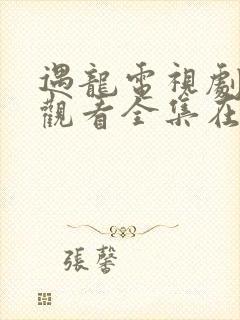 遇龍電視劇
觀看全集在
張馨